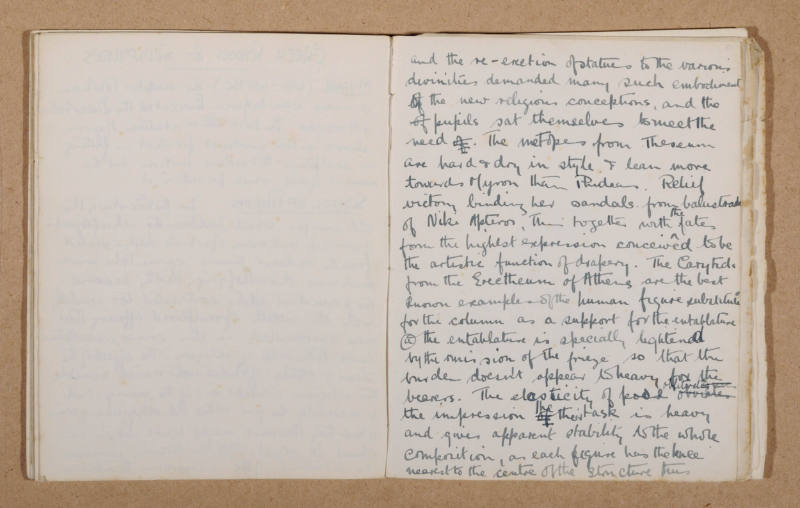 and the re-erection of statues to the various
divinities demanded many such embodiment
of the new religious conceptions, and the
of pupils sat themselves to meet the
need of. The metopes from Theseum
are hard & dry in style & lean more
towards Myron than Phideas. Relief
victory binding her sandals from balustrade
of Nike Apteros, This together with the fates
form the highest expression conceived to be
the artistic function of drapery. The Caryteds
from the Erectheum of Athens are the best
known examples of the human figure substitute
for the column as a support for the entablature
the entablature is specially lightened
by the omission of the frieze so that the
burden doesn't appear to heavy for the
bearers. The elasticity of obviates
the impression the their task is heavy
and gives apparent stability to the whole
composition, as each figure has the knee
nearest to the centre of the structure thus